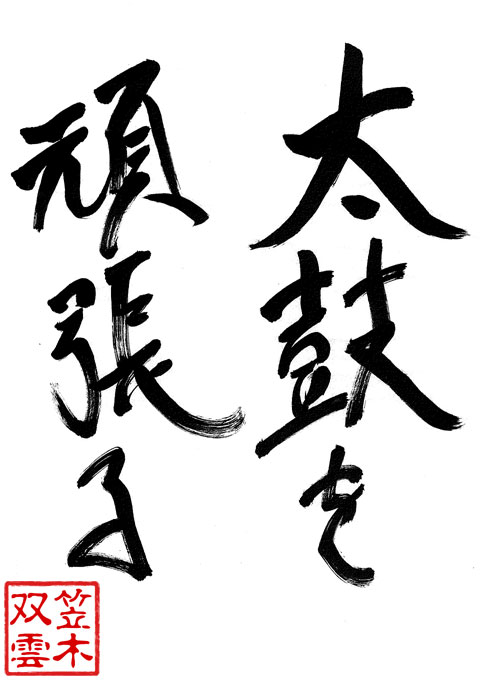 太鼓を
頑張る
笠木
双雲